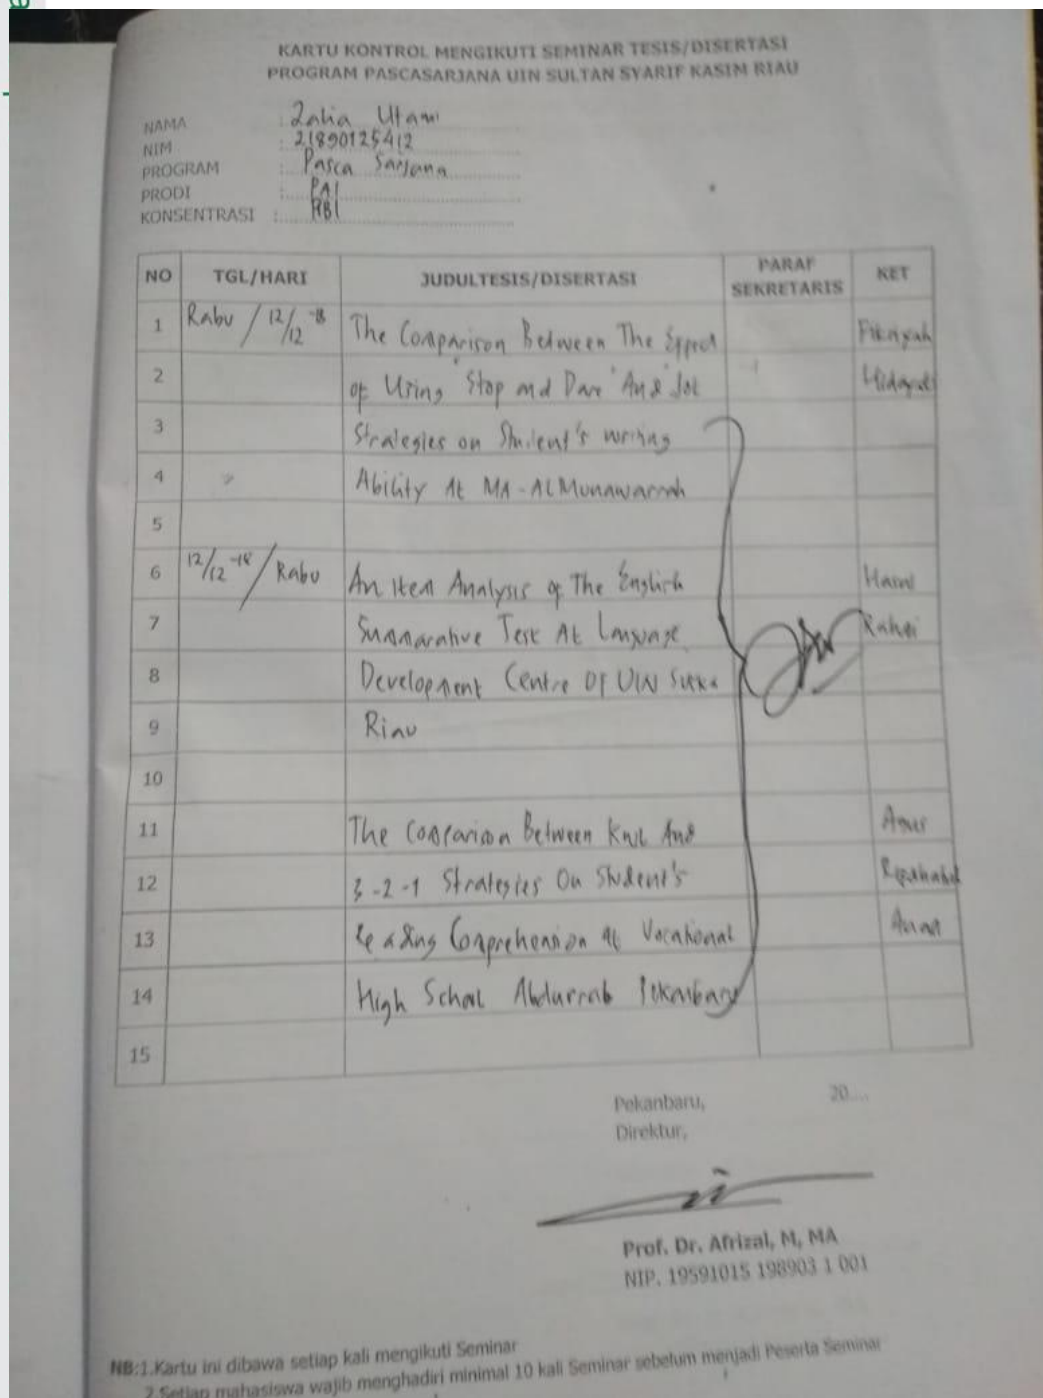 KARTU KONTROL MENGIKUTI SEMINAR TESIS/DISERTASI
PROGRAM PASCASARJANA UIN SULTAN SYARIF KASIM RIAU
NAMA : Zalia Utami
NIM : 21890125412
PROGRAM : Pasca Sarjana
PRODI : PAI
KONSENTRASI : PBI
NO TGL/HARI JUDULTESIS/DISERTASI PARAF SEKRETARIS KET
1 Rabu / 12/12 -18 The Comparison Between The Effect Fikriyah
2 of Using "Stop and Dare" And Jol Hidayati
3 Strategies on Student's Writing
4 Ability At MA-Al Munawarrah
5
6 12/12 -18 / Rabu An Item Analysis of The English
7 Summarative Test At Language
8 Development Centre Of UIN Suska
9 Riau
10
11 The Comparison Between And Agus
12 3-2-1 Strategies On Student's
13 Reading Comprehension At Vocational
14 High School Abdurrab Pekanbaru
15
Pekanbaru, 20....
Direktur,
Prof. Dr. Afrizal, M, MA
NIP. 19591015 198903 1 001
NB:1.Kartu ini dibawa setiap kali mengikuti Seminar
2.Setiap mahasiswa wajib menghadiri minimal 10 kali Seminar sebelum menjadi Peserta Seminar